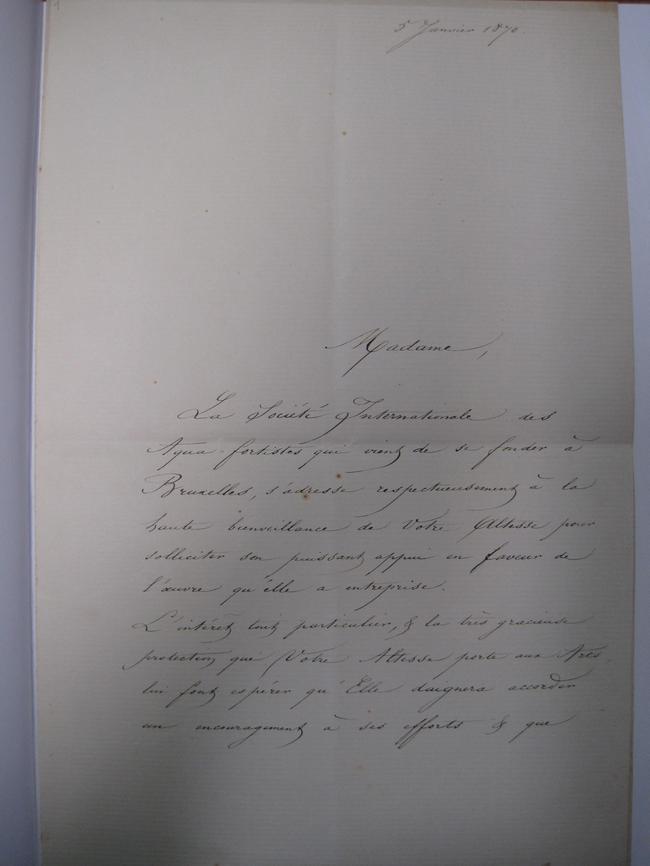 5 Janvier 1870.
Madame,
La Société Internationale des
Aqua-fortistes qui vient de se fonder à
Bruxelles, s'adresse respectueusement à la
haute bienveillance de Votre Altesse pour
solliciter son puissant appui en faveur de
l'œuvre qu'elle a entreprise.
L'intérêt tout particulier, & la très gracieuse
protection que Votre Altesse porte aux Arts,
lui font espérer qu'Elle daignera accorder
un encouragement à ses efforts & que